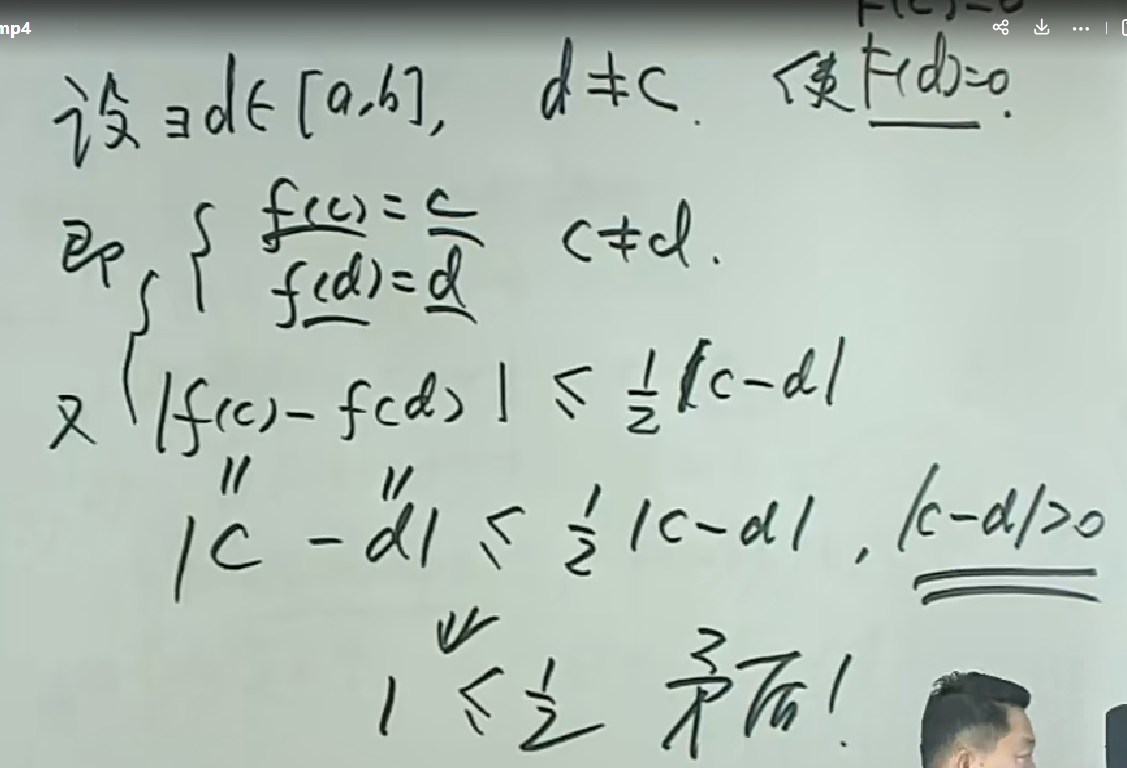 mp4
F(c)=0
设 ∃d∈[a,b], d≠c. 使F(d)=0.
即 { f(c)=c c≠d.
f(d)=d
又 { |f(c)-f(d)| ≤ 1/2 |c-d|
|| ||
|c - d| ≤ 1/2 |c-d|, |c-d|>0
⇓
1 ≤ 1/2 矛盾!